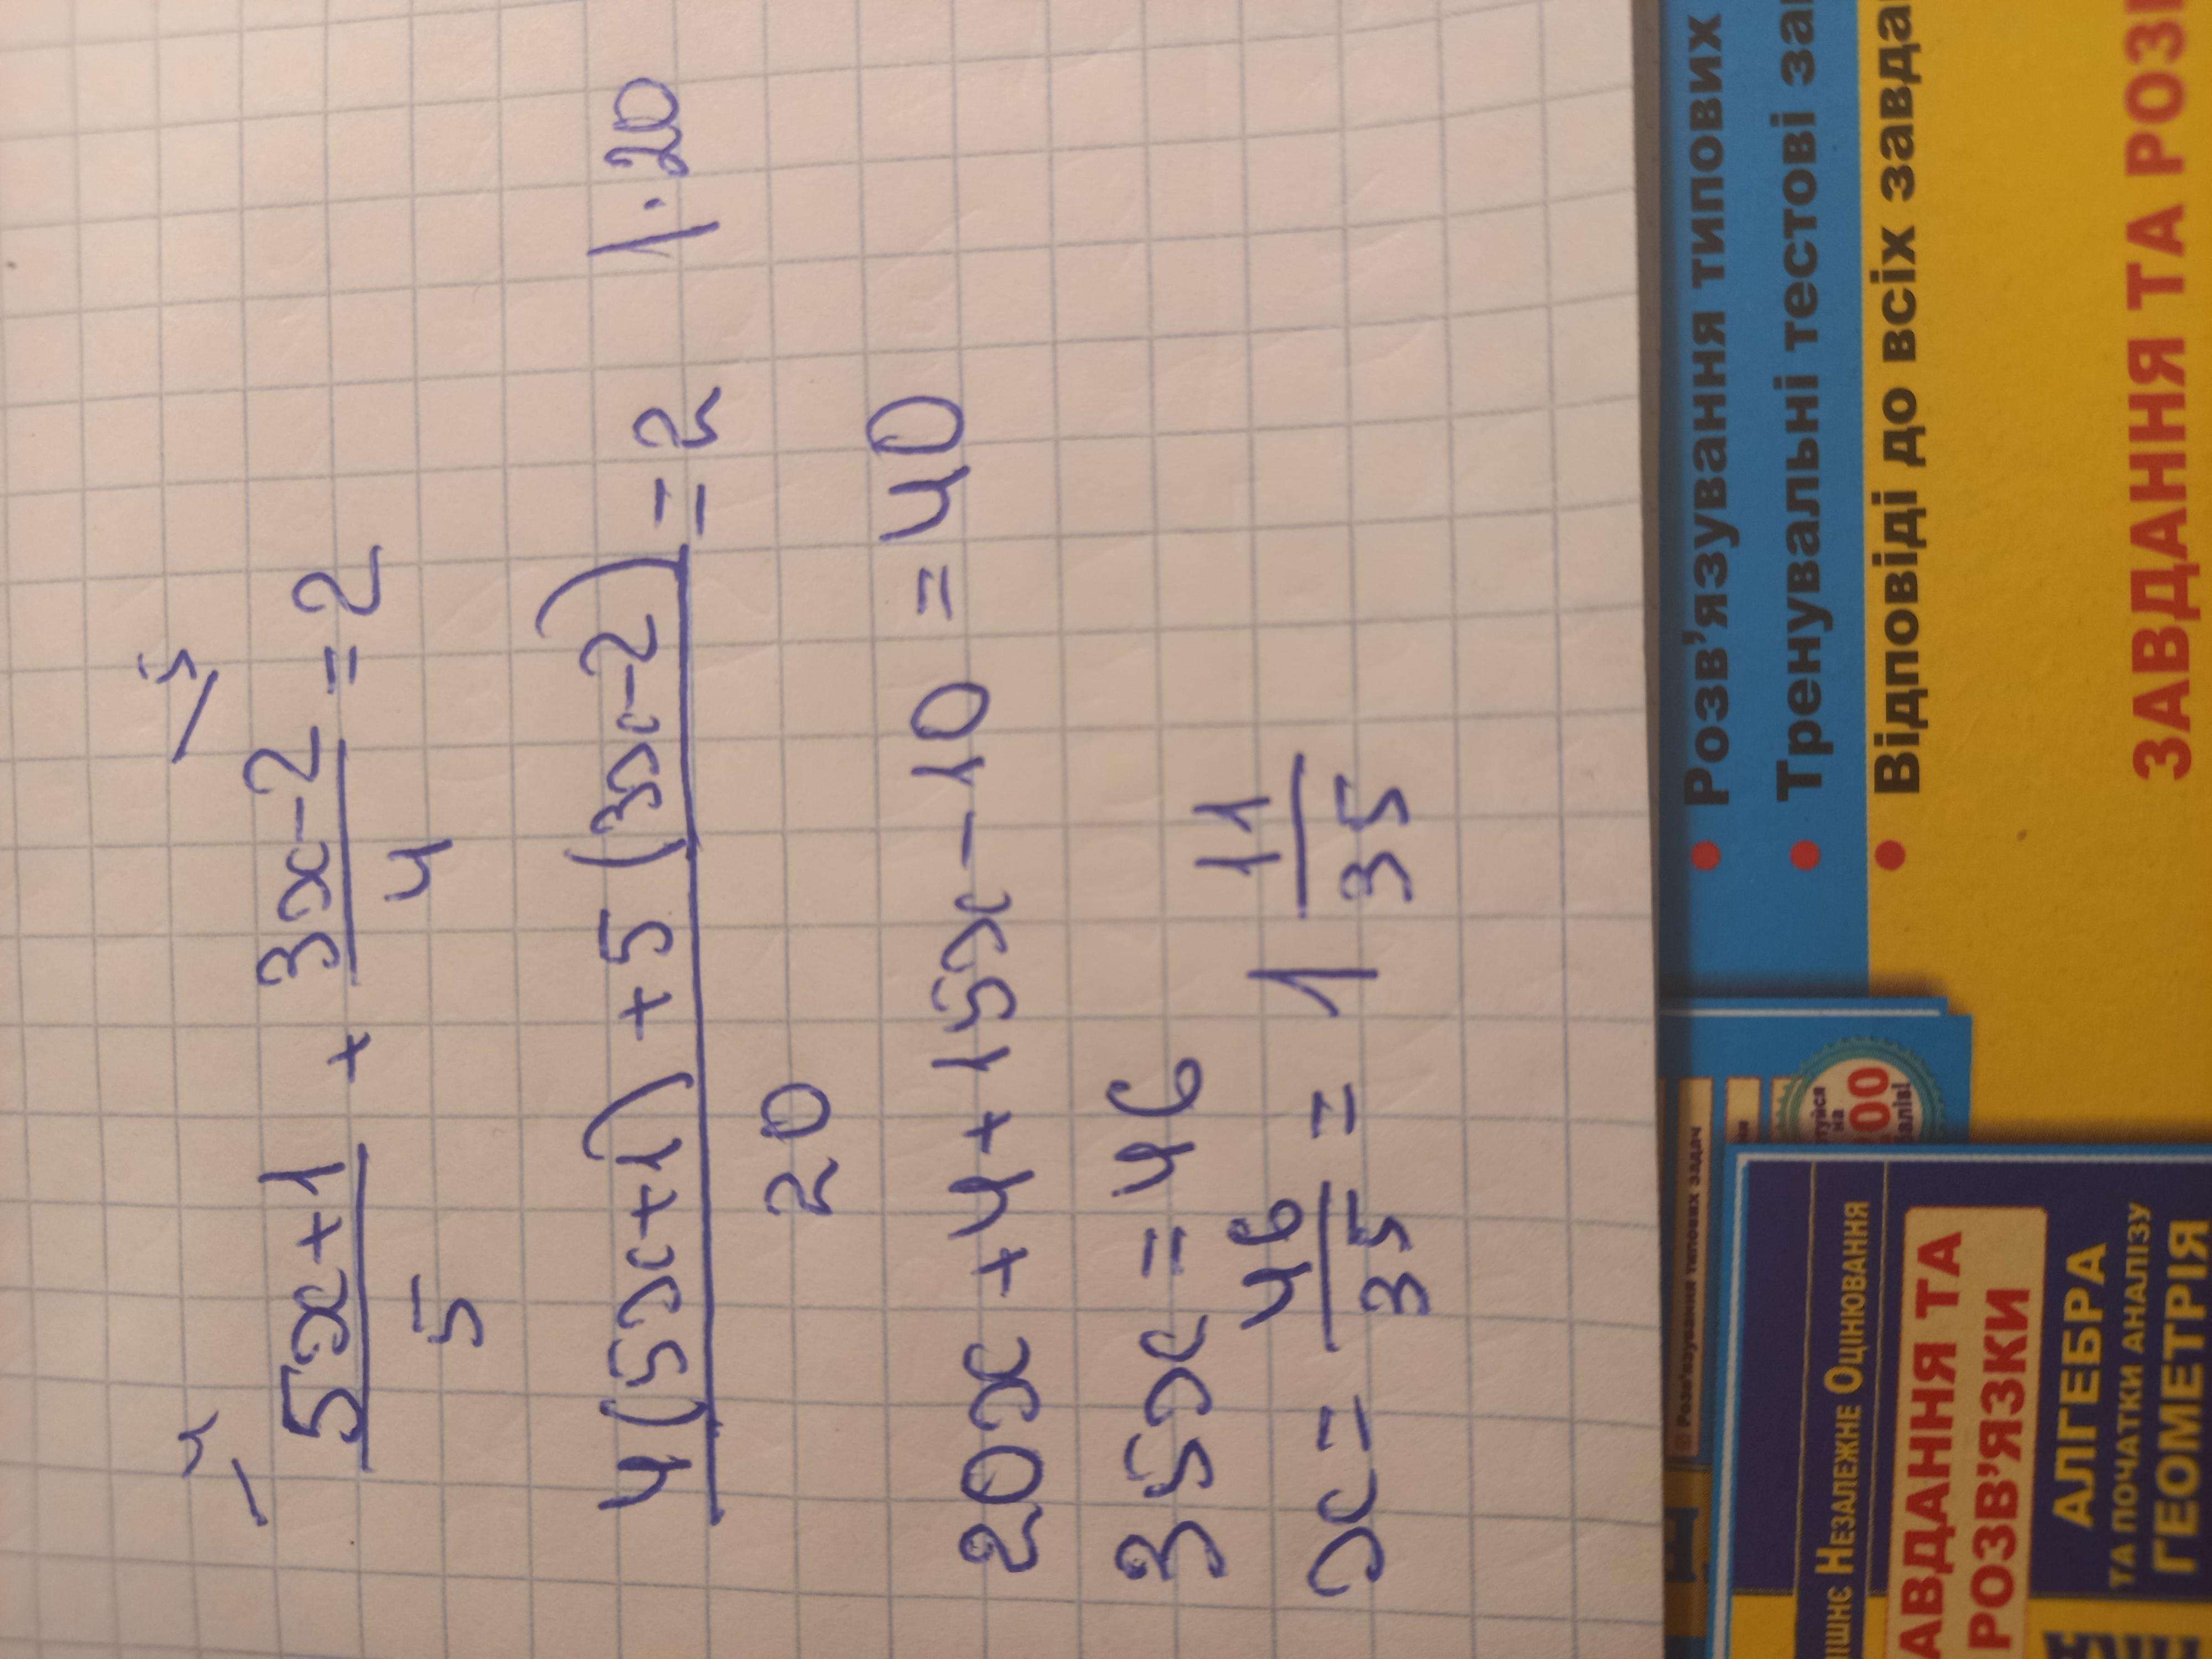 4 5
5x+1/5 + 3x-2/4 = 2
4(5x+1) + 5(3x-2)/20 = 2 |·20
20x + 4 + 15x - 10 = 40
35x = 46
x = 46/35 = 1 11/35
• Розв'язування типових
• Тренувальні тестові за
• Відповіді до всіх завда
ЗАВДАННЯ ТА РОЗ
Розв'язування типових задач
на
00
ШНЄ НЕЗАЛЕЖНЕ ОЦІНЮВАННЯ
АВДАННЯ ТА
РОЗВ'ЯЗКИ
АЛГЕБРА
ТА ПОЧАТКИ АНАЛІЗУ
ГЕОМЕТРІЯ